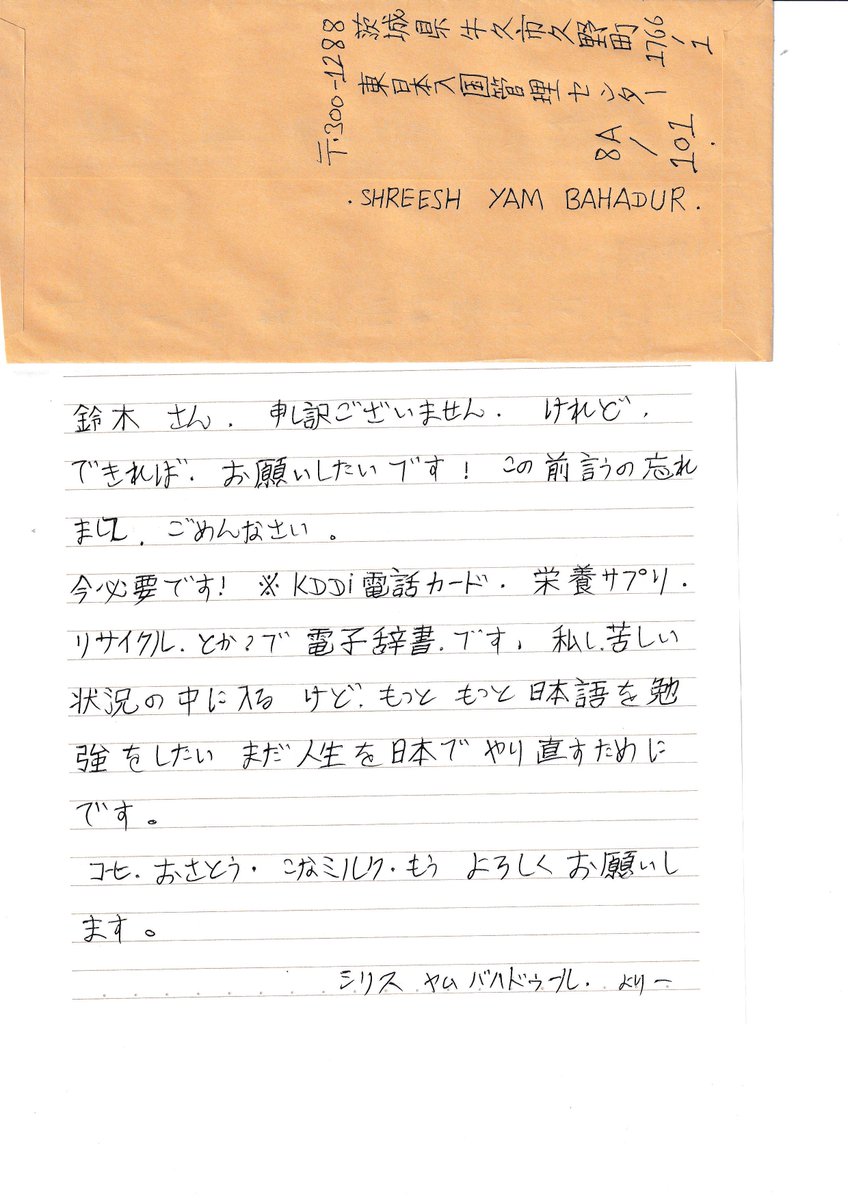 〒300-1288 茨城県牛久市久野町1766/1
東日本入国管理センター
8A/101.
. SHREESH YAM BAHADUR .
鈴木 さん . 申し訳ございません . けれど .
できれば . お願いしたいです ! この前言うの忘れ
まして . ごめんなさい 。
今必要です! ※ KDDi 電話カード . 栄養サプリ .
リサイクル . とか?で 電子辞書 . です 、 私し 苦しい
状況の中に入る けど . もっと もっと 日本語を勉
強をしたい まだ人生を日本で やり直すために
です 。
コーヒ . おさとう . こなミルク . もう よろしく お願いし
ます 。
シリス ヤム バハドゥール . より一